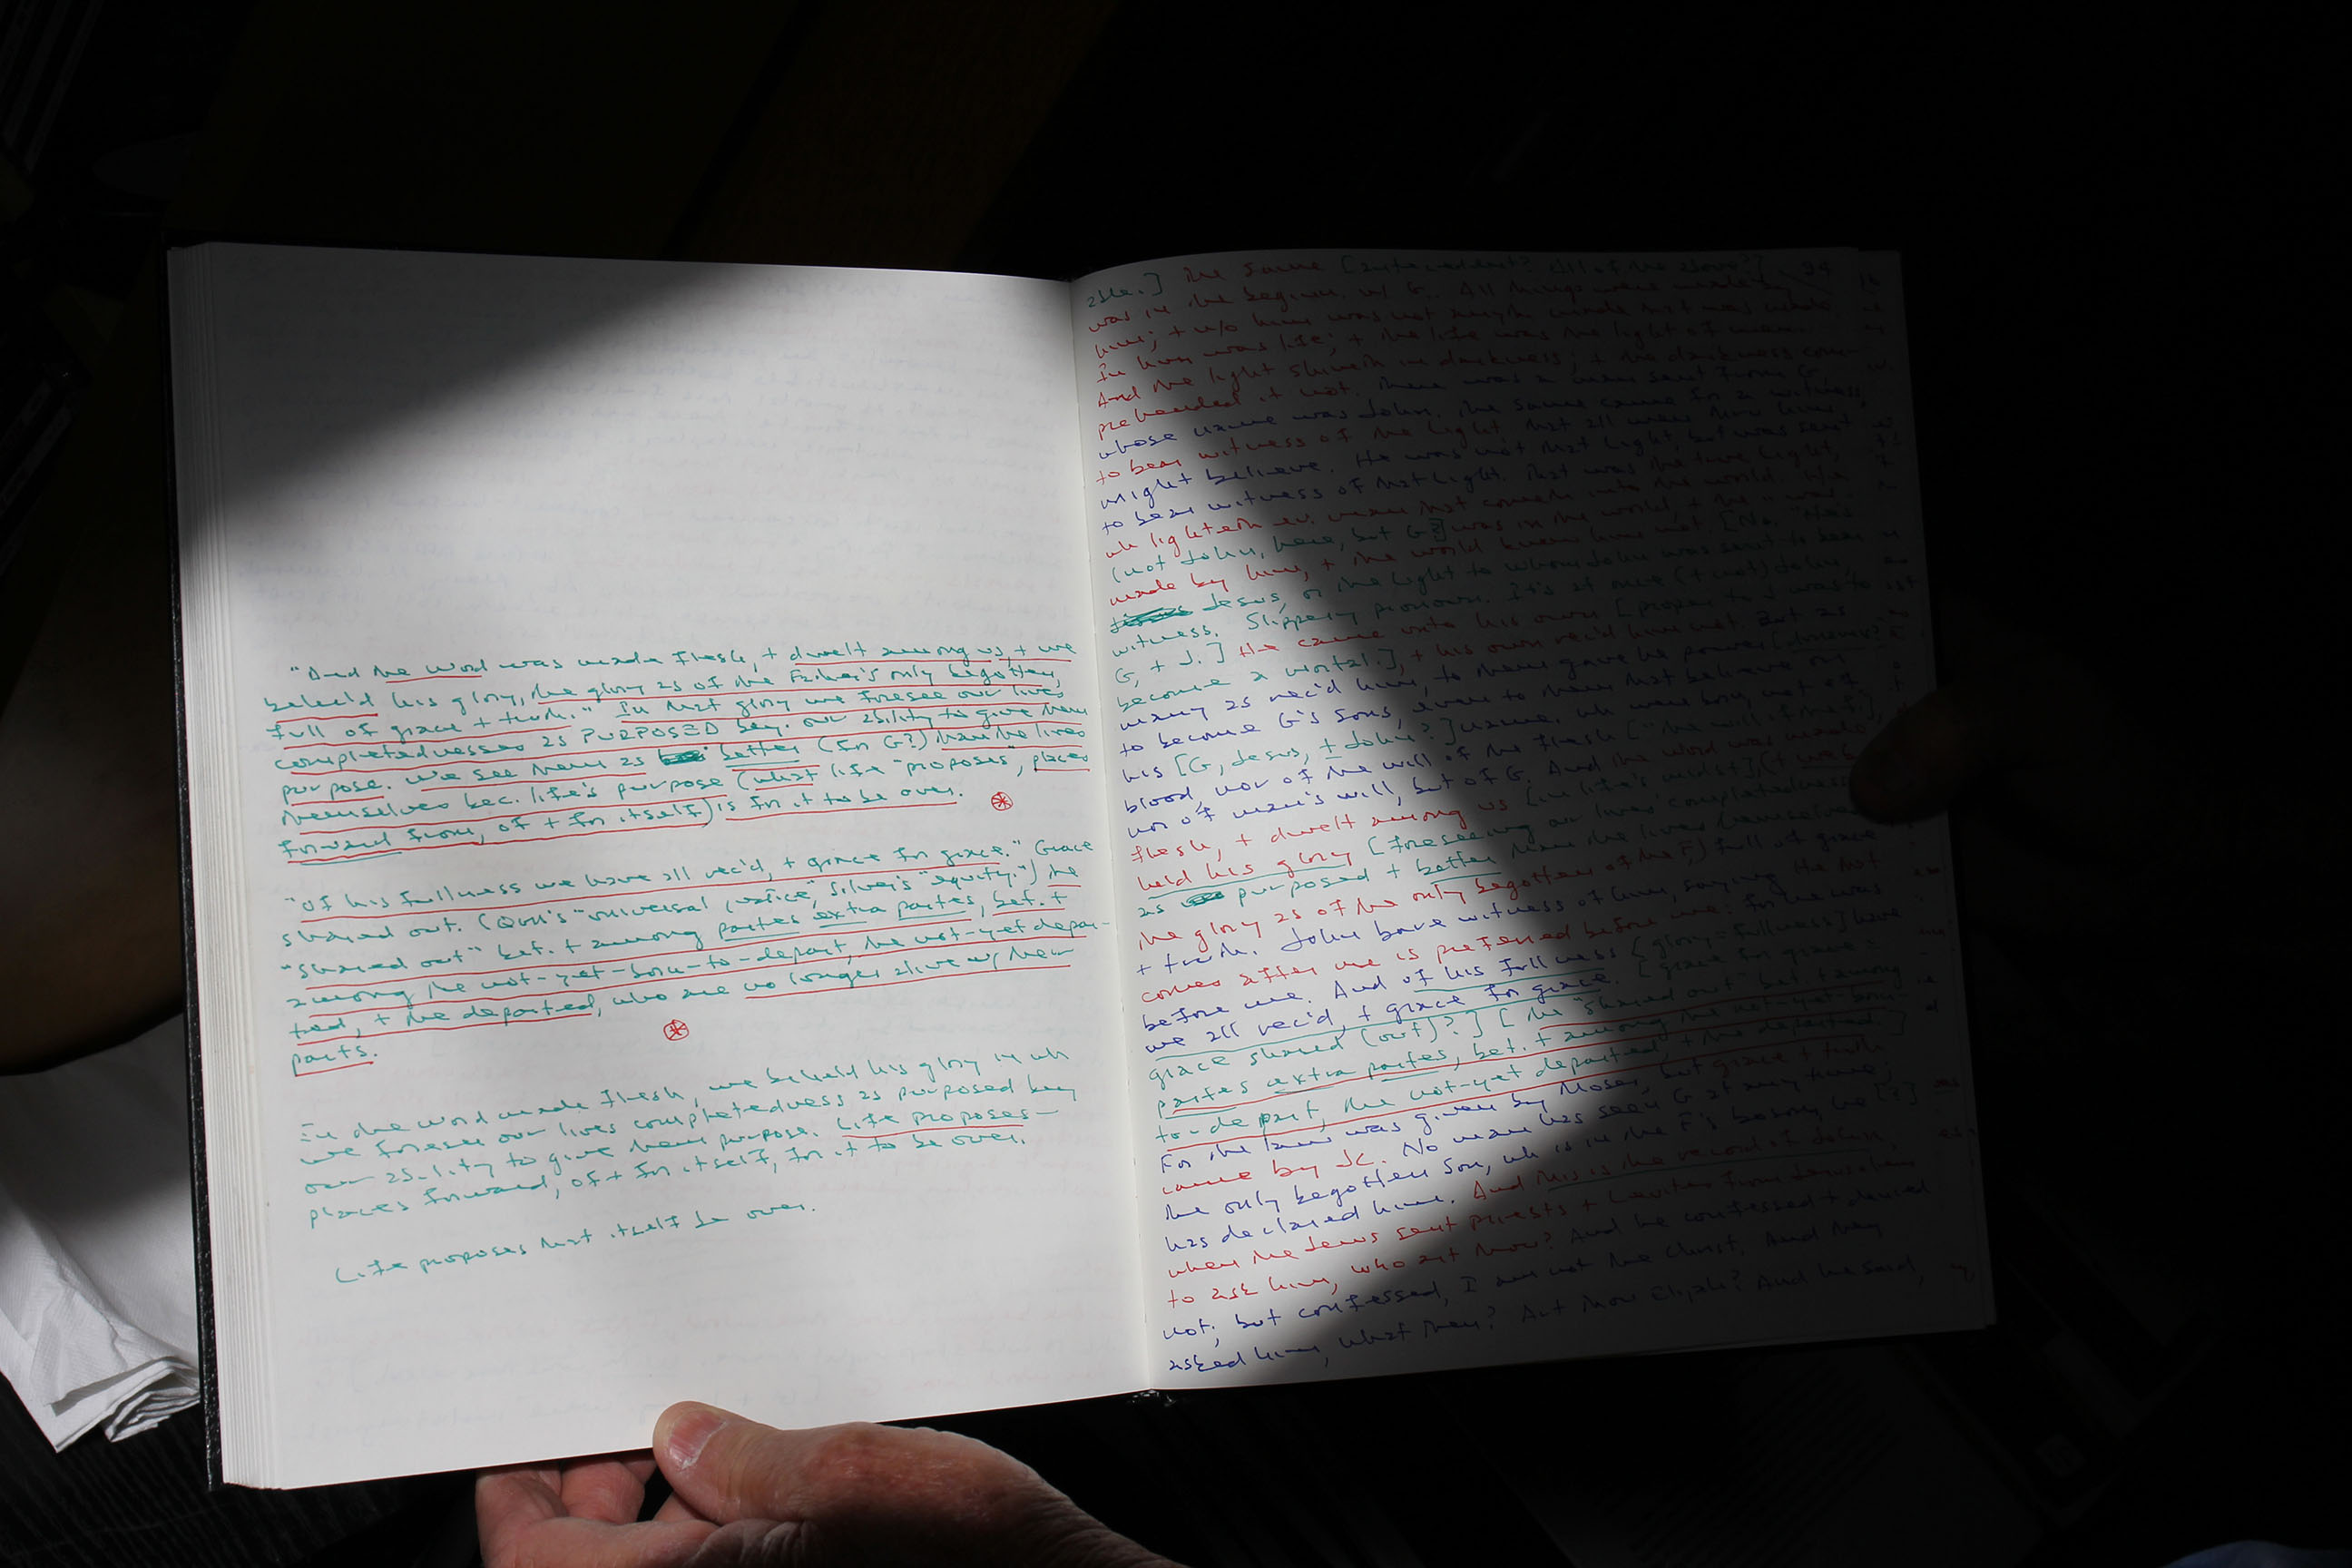 "And the word was made flesh, + dwelt among us, + we
beheld his glory, the glory as of the Father's only begotten,
full of grace + truth." In that glory we foresee our lives
completednesses as PURPOSED bey. our ability to give them
purpose. We see them as better (for G?) than the lives
themselves bec. life's purpose (what life "proposes", places
forward from, of + for itself) is for it to be over.
"Of his fullness we have all rec'd, + grace for grace." Grace
shared out. "universal justice", "equity".) the
"shared out" bet. + among partes extra partes, bet. +
among the not-yet-born-to-depart, the not-yet depar-
ted, + the departed, who are no longer alive w/ their
parts.
In the word made flesh, we beheld his glory in wh
we foresee our lives completedness as purposed bey
our ability to give them purpose. Life proposes—
places forward, of + for itself, for it to be over.
Life proposes that itself be over.
The same
was in the beginn. w/ G. All things were made by
him; + w/o him was not made that was made
In him was life; + the life was the light of men.
And the light shineth in darkness; + the darkness com-
prehended it not. There was a man sent from G,
whose name was John. The same came for a witness,
to bear witness of the Light, that all men thro him
might believe. He was not that Light, but was sent
to bear witness of that Light. That was the true Light,
wh lighteth ev. man that cometh into the world. He
(not John, here, but G?] was in the world, + the was
made by him, + the world knew him not. [No.
Jesus, or the Light to whom John was sent to bear
witness. Slippery pronoun. It's at once (+ not) John,
G, + J.] He came unto his own [proper to J was to
become a mortal.], + his own rec'd him not. But as
many as rec'd him, to them gave he power
to become G's sons, even to them that believe on
his [G, Jesus, + John?] name. wh were born, not of
blood, nor of the will of the flesh
nor of man's will, but of G. And the word was made
flesh, + dwelt among us [in life's midst], (+ we be-
held his glory [foreseeing our lives' completedness
as purposed + better than the lives themselves]
the glory as of the only begotten of the F,) full of grace
+ truth. John bare witness of him, saying He that
comes after me is preferred before me: for he was
before me. And of his fullness [glory=fullness] have
we all rec'd, + grace for grace. [grace for grace =
grace shared (out)?] [the "shared out" bet. + among
partes extra partes, bet. + among the not-yet-born-
to-depart, the not-yet departed, + the departed]
For the law was given by Moses, but grace + truth
came by JC. No man has seen G at any time;
the only begotten Son, wh is in the F's bosom, he [?]
has declared him. And this is the record of John,
when the Jews sent priests + Levites from Jerusalem
to ask him, who art thou? And he confessed + denied
not; but confessed, I am not the Christ. And they
asked him, what then? Art thou Elijah? And he said,